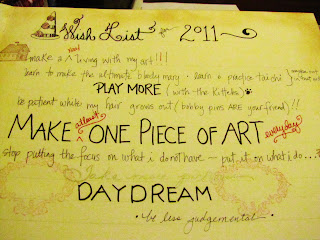 A Wish List for 2011~
make a real living with my art!!!
learn to make the ultimate bloody mary · learn & practice tai chi
PLAY MORE (with the kittehs)
be patient while my hair grows out (bobby pins ARE your friend!!)
MAKE atleast ONE PIECE OF ART everyday
stop putting the focus on what i do not have — put it on what i do...
DAYDREAM
· be less judgemental ·